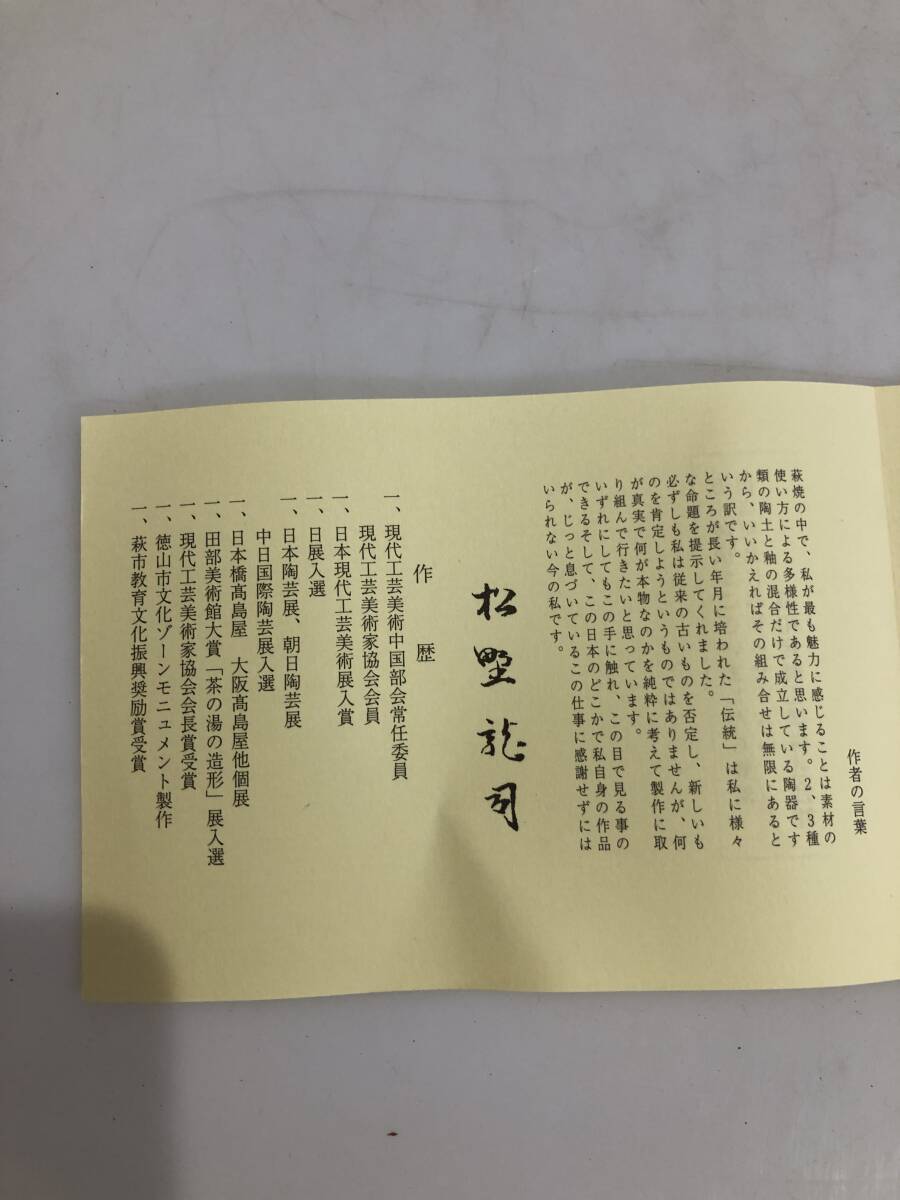 作者の言葉
萩焼の中で、私が最も魅力に感じることは素材の
使い方による多様性であると思います。2、3種
類の陶土と釉の混合だけで成立している陶器です
から、いいかえればその組み合せは無限にあると
いう訳です。
ところが長い年月に培われた「伝統」は私に様々
な命題を提示してくれました。
必ずしも私は従来の古いものを否定し、新しいも
のを肯定しようというものではありませんが、何
が真実で何が本物なのかを純粋に考えて製作に取
り組んで行きたいと思っています。
いずれにしてもこの手に触れ、この目で見る事の
できるそして、この日本のどこかで私自身の作品
が、じっと息づいているこの仕事に感謝せずには
いられない今の私です。
松野龍司
作歴
一、現代工芸美術中国部会常任委員
現代工芸美術家協会会員
一、日本現代工芸美術展入賞
一、日展入選
一、日本陶芸展、朝日陶芸展
中日国際陶芸展入選
一、日本橋髙島屋　大阪髙島屋他個展
一、田部美術館大賞「茶の湯の造形」展入選
一、現代工芸美術家協会会長賞受賞
一、徳山市文化ゾーンモニュメント製作
一、萩市教育文化振興奨励賞受賞